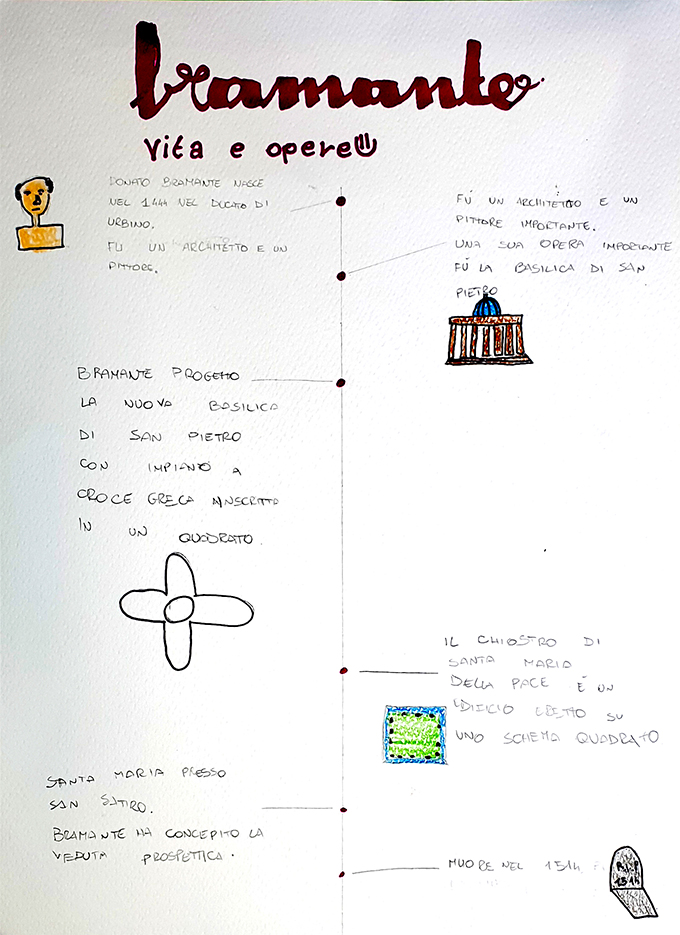 bramante
Vita e opere
DONATO BRAMANTE NASCE
NEL 1444 NEL DUCATO DI
URBINO.
FU UN ARCHITETTO E UN
PITTORE.
FÚ UN ARCHITETTO E UN
PITTORE IMPORTANTE.
UNA SUA OPERA IMPORTANTE
FÚ LA BASILICA DI SAN
PIETRO
BRAMANTE PROGETTO
LA NUOVA BASILICA
DI SAN PIETRO
CON IMPIANTO A
CROCE GRECA INSCRITTO
IN UN QUADRATO.
IL CHIOSTRO DI
SANTA MARIA
DELLA PACE É UN
EDIFICIO ERETTO SU
UNO SCHEMA QUADRATO
SANTA MARIA PRESSO
SAN SATIRO.
BRAMANTE HA CONCEPITO LA
VEDUTA PROSPETTICA.
MUORE NEL 1514
R.I.P
1514